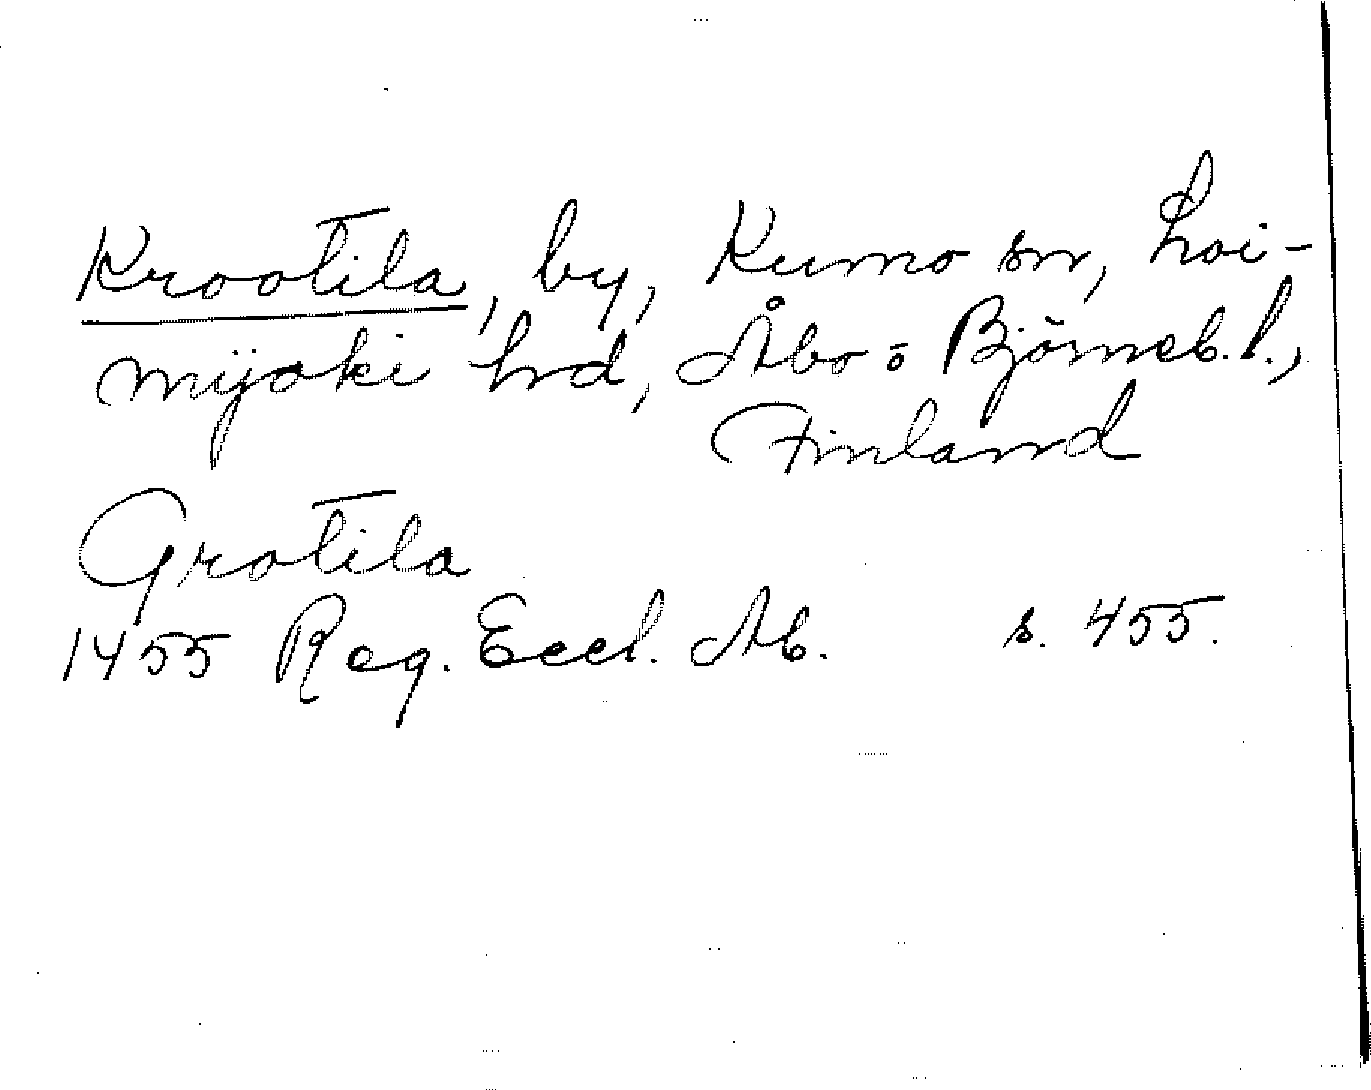 Krootila, by, Kumo sn, Loi-
mijoki hrd, Åbo o Björneb. l.,
Finland
Grotila
1455 Reg. Eccl. Ab. s. 455.